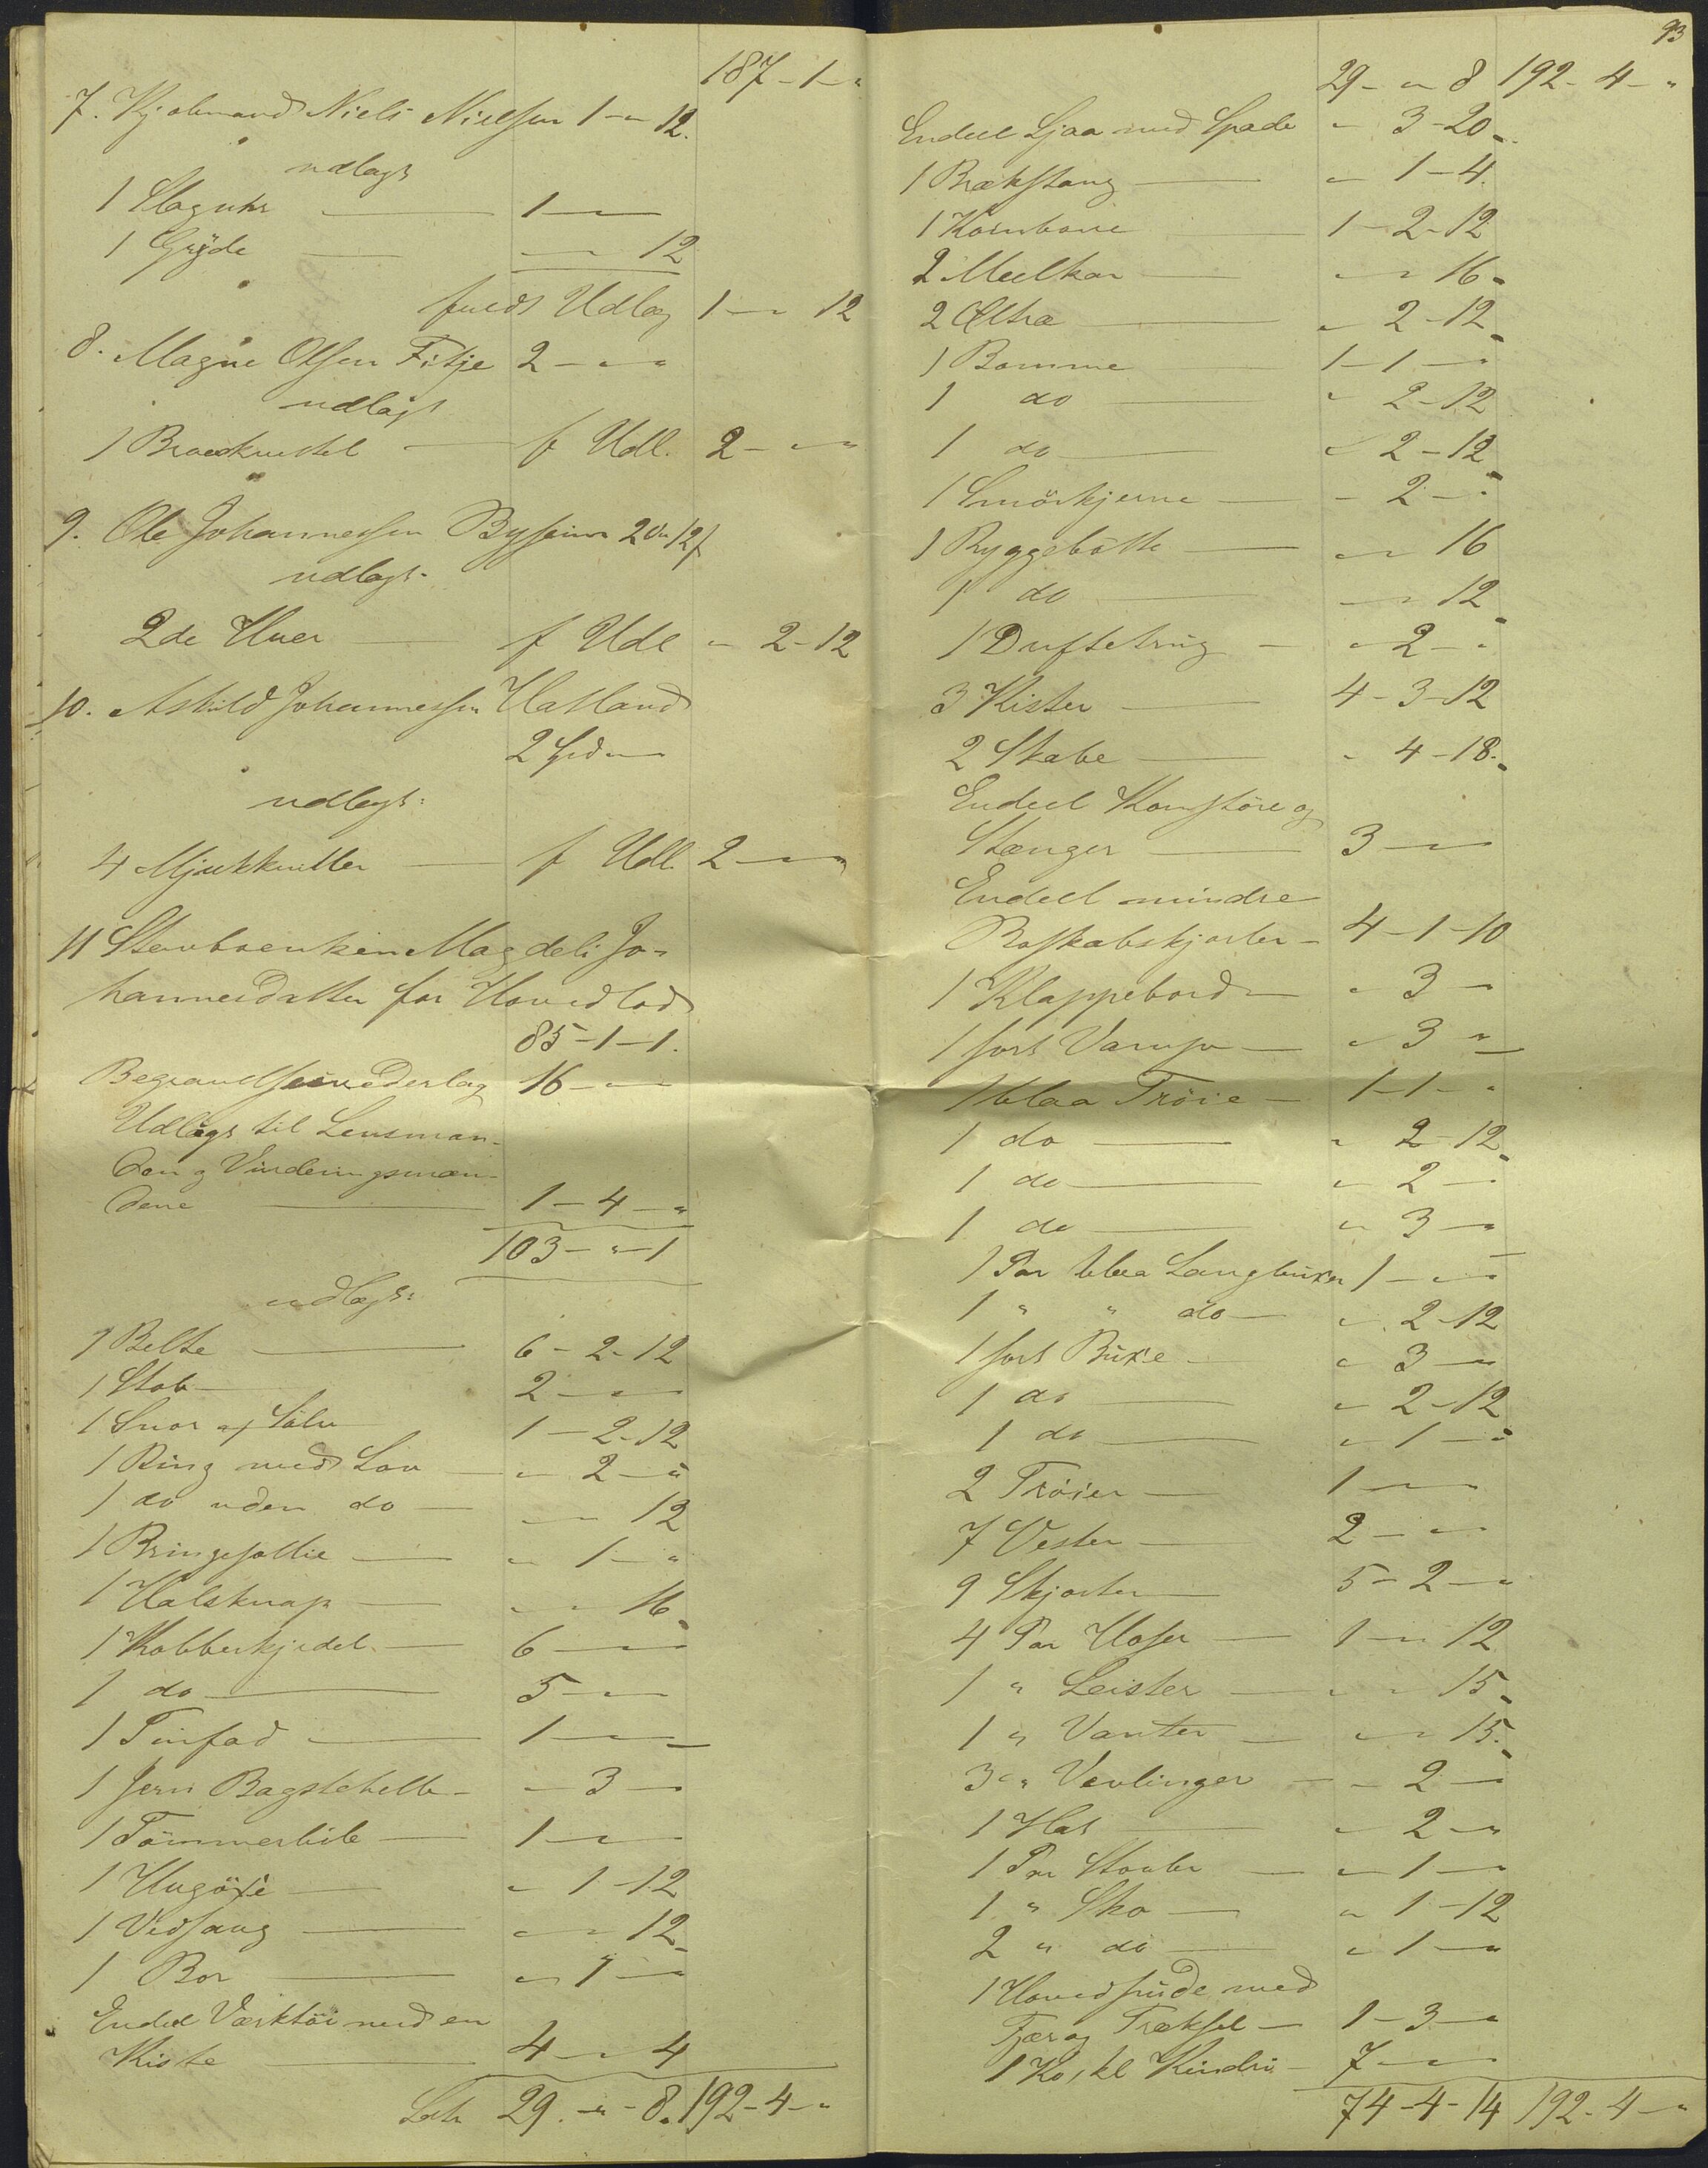 187-1-"
7. Kjøbmand Niels Nielsen 1-"-12.
udlagt
1 Slaguhr — 1-"-"
1 Gryde — "-"-12
fuldt Udlæg 1-"-12
8. Magne Olsen Fitje 2-"-"
udlagt
1 — f Udl. 2-"-"
9. Ole Johannessen 2 Ort 12 f
udlagt
2de Huer — f Udl "-2-12
10. Askild Johannessen Hatland
2 Spd "-"
udlagt:
4 — f Udl. 2-"-"
11 Stervboenken Magdeli Jo-
hannesdatter for Hovedlod
85-1-1.
Begravelsesvederlag 16-"-"
Udlagt til Lensman-
den og Vurderingsmæn-
dene — 1-4-"
103-"-1
udlagt:
1 Belte — 6-2-12
1 Stob — 2-"-"
1 Snor af Sølv 1-2-12
1 Ring med Löv — "-2-"
1 do uden do — "-"-12
1 Bringesøllie — "-1-"
1 Halsknap — "-"-16
1 Kobberkjedel — 6-"-"
1 do — 5-"-"
1 Tinfad — 1-"-"
1 Jern Bagstehelle — "-3-"
1 Tömmerbile — 1-"-"
1 Hugöxe — "-1-12
1 Vedsaug — "-"-12
1 Bor — "-1-"
Endeel Værktöi med en
Kiste — 4-"-4
Lat. 29-"-8. 192-4-"
93
29-"-8 192-4-"
Endeel Ljaa med Spade "-3-20
1 Brækstang — "-1-4.
1 — 1-2-12
2 Meelkar — "-"-16
2 Øltræ — "-2-12
1 Bomme — 1-1-"
1 do — "-2-12
1 do — "-2-12
1 Smörkjerne — "-2-"
1 Byggebötte — "-"-16
1 do — "-"-12
1 — "-2-"
3 Kister — 4-3-12
2 Skabe — "-4-18.
Endeel Kornstöre og
Stænger — 3-"-"
Endeel mindre
Boskabskjorler — 4-1-10
1 Klappebord — "-3-"
1 sort Vams — "-3-"
1 blaa Tröie — 1-1-"
1 do — "-2-12
1 do — "-2-"
1 do — "-3-"
1 Par blaa Langbuxer 1-"-"
1 " " do — "-2-12
1 sort Buxe — "-3-"
1 do — "-2-12
1 do — "-1-"
2 Tröier — 1-"-"
7 Vester — 2-"-"
9 Skjorter — 5-2-"
4 Par Hoser — 1-"-12
1 " Leister — "-"-15
1 " Vanter — "-"-15.
3 " Vevlinger — "-2-"
1 Hat — "-2-"
1 Par Stövler — "-1-"
1 " Sko — "-1-12
2 " do — "-1-"
1 Hovedpude med
Fjær og — 1-3-"
1 Ko, kl — 7-"-"
74-4-14 192-4-"